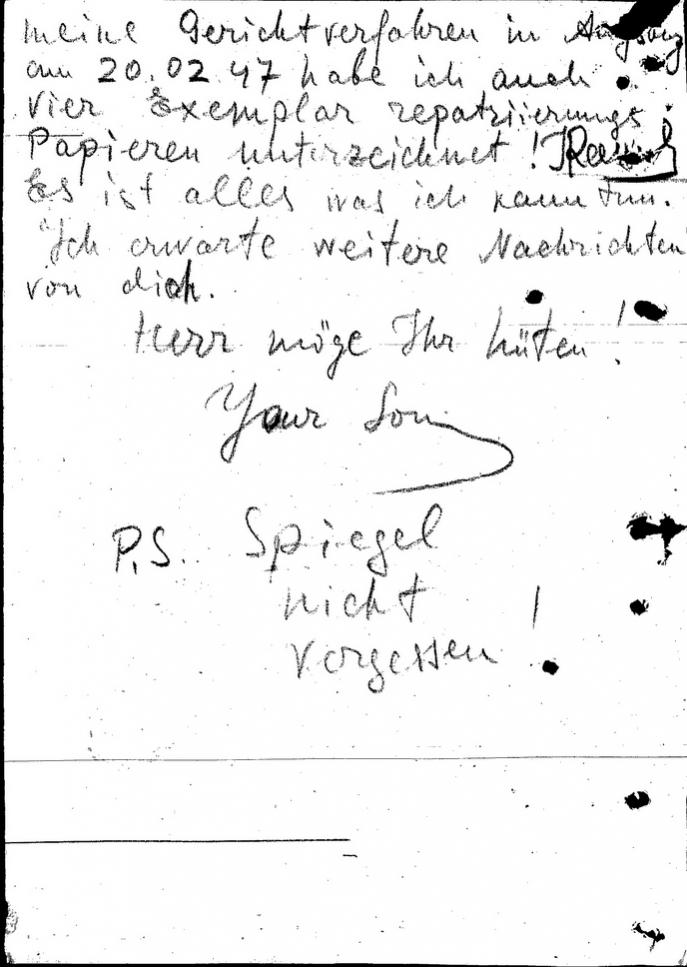 meine Gerichtverfahren in Augsburg
am 20.02.47 habe ich auch
vier Exemplar repatriierungs
Papieren unterzeichnet!
Es ist alles was ich kann tun.
Ich erwarte weitere Nachrichten
von dich.
Herr möge Ihr hüten!
Your Son
P.S. Spiegel
nicht !
vergessen